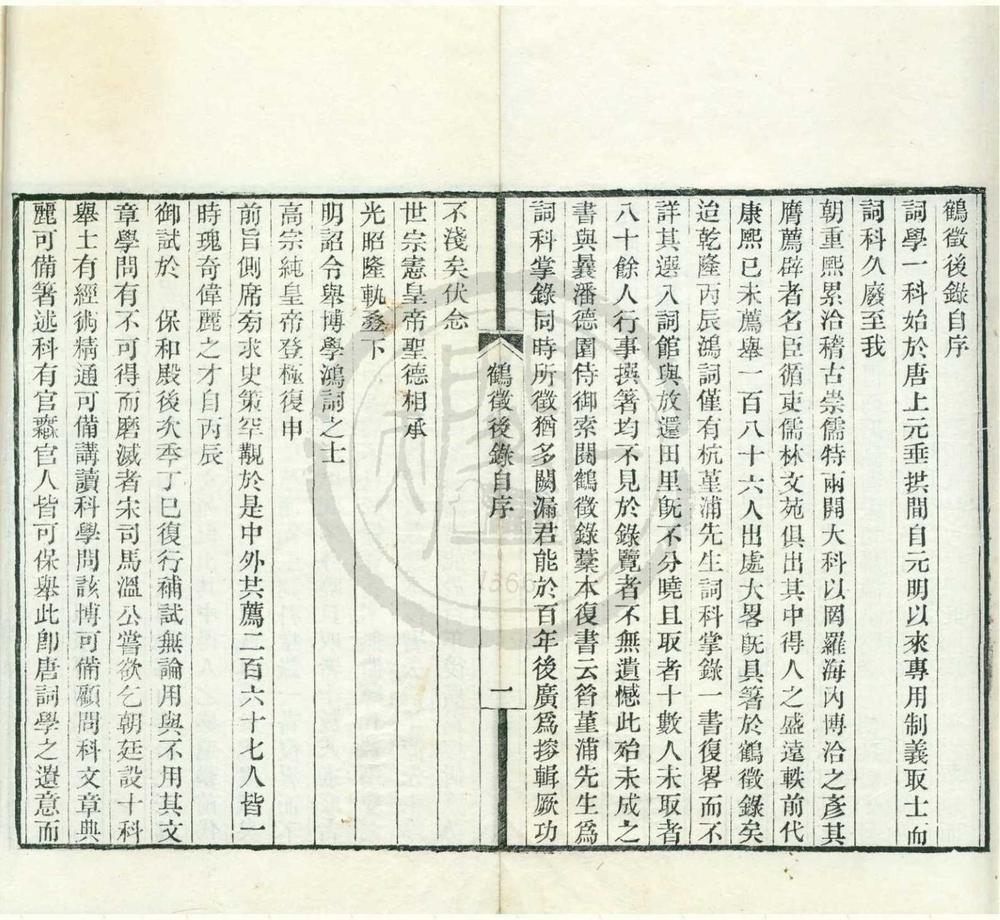 鶴徵後錄自序
詞學一科始於唐上元垂拱間自元明以來專用制義取士而
詞科久廢至我
朝重熙累洽稽古崇儒特兩開大科以罔羅海內博洽之彥其
膺薦辟者名臣循吏儒林文苑俱出其中得人之盛遠軼前代
康熙己未薦舉一百八十六人出處大畧旣具箸於鶴徵錄矣
迨乾隆丙辰鴻詞僅有杭堇浦先生詞科掌錄一書復畧而不
詳其選入詞館與放還田里旣不分曉且取者十數人未取者
八十餘人行事撰箸均不見於錄覽者不無遺憾此殆未成之
書與曩潘德園侍御索閱鶴徵錄藁本復書云昝堇浦先生爲
詞科掌錄同時所徵猶多闕漏君能於百年後廣爲摉輯厥功
鶴徵後錄自序
一
不淺矣伏念
世宗憲皇帝聖德相承
光昭隆軌叠下
明詔令舉博學鴻詞之士
高宗純皇帝登極復申
前旨側席旁求史策罕覯於是中外共薦二百六十七人皆一
時瑰奇偉麗之才自丙辰
御試於 保和殿後次秊丁巳復行補試無論用與不用其文
章學問有不可得而磨滅者宋司馬溫公嘗欲乞朝廷設十科
舉士有經術精通可備講讀科學問該博可備顧問科文章典
麗可備箸述科有官無官人皆可保舉此卽唐詞學之遺意而